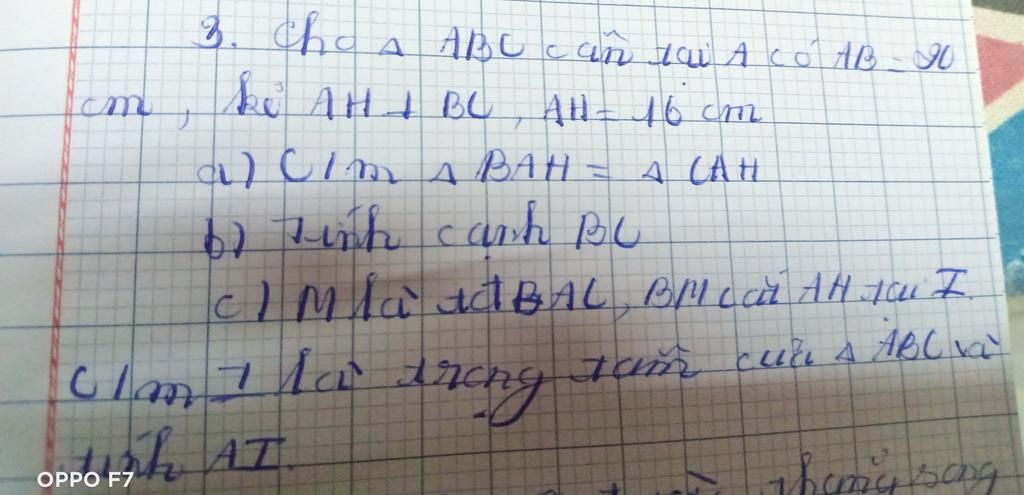 3. Cho Δ ABC cân tại A có AB = 20
cm, kẻ AH ⊥ BC, AH = 16 cm
a) C/m Δ BAH = Δ CAH
b) Tính cạnh BC
c) M là tđ AC, BM cắt AH tại I.
C/m I là trọng tâm của Δ ABC và
tính AI.
thẳng song
OPPO F7